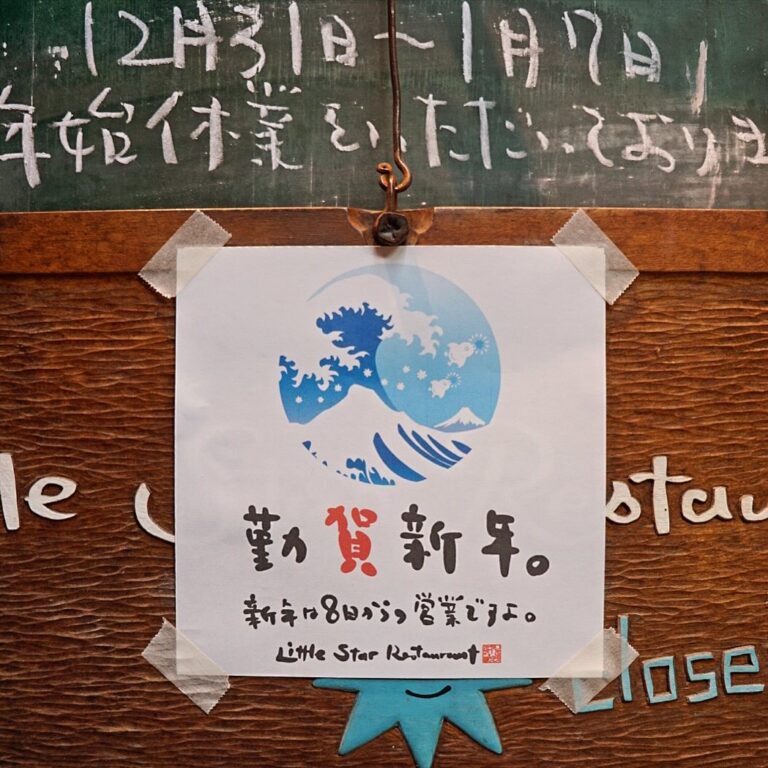 12月31日〜1月7日
年始休業をいただいておりま
勤賀新年。
新年は8日からの営業ですよ。
Little Star Restaurant
le
stau
Close